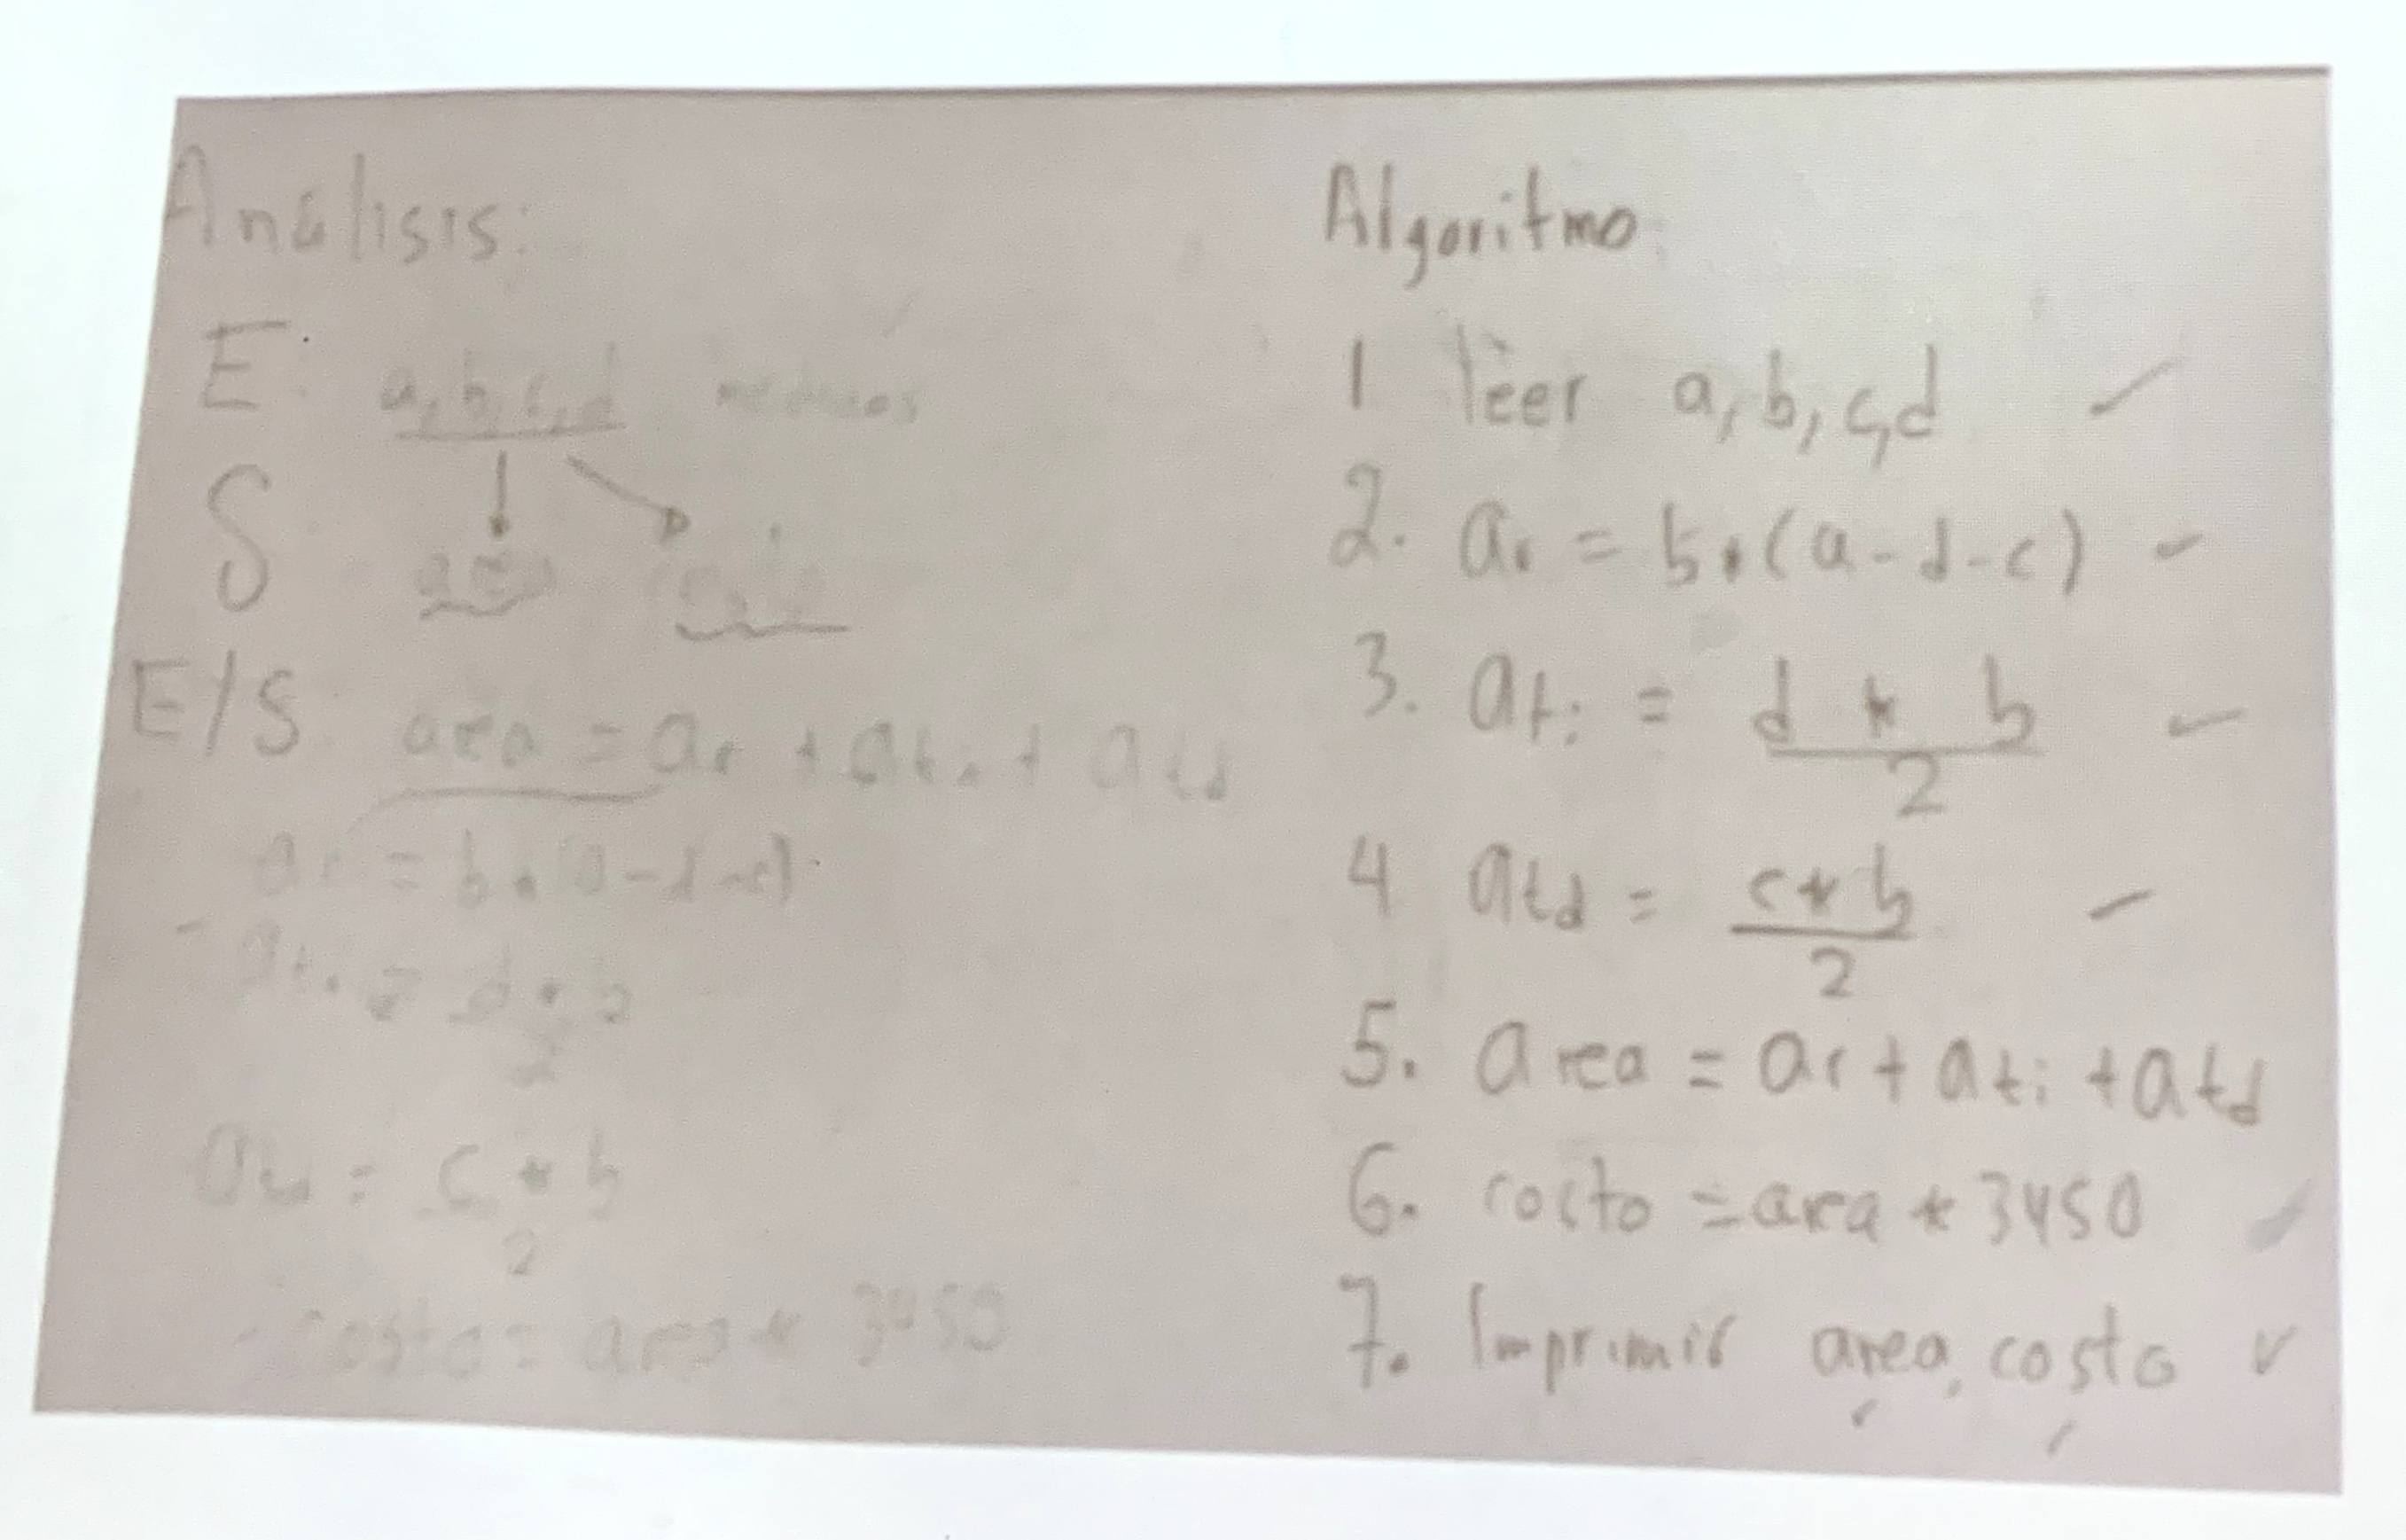 Análisis:
E: a, b, c, d medidas
S area costo
E/S: area = ar + ati + atd
ar = b * (a-d-c)
ati = d * b
2
atd = c * b
2
- costo = area * 3450
Algoritmo:
1 leer a, b, c, d
2. ar = b * (a-d-c)
3. ati = d * b
2
4 atd = c * b
2
5. area = ar + ati + atd
6. costo = area * 3450
7. Imprimir area, costo